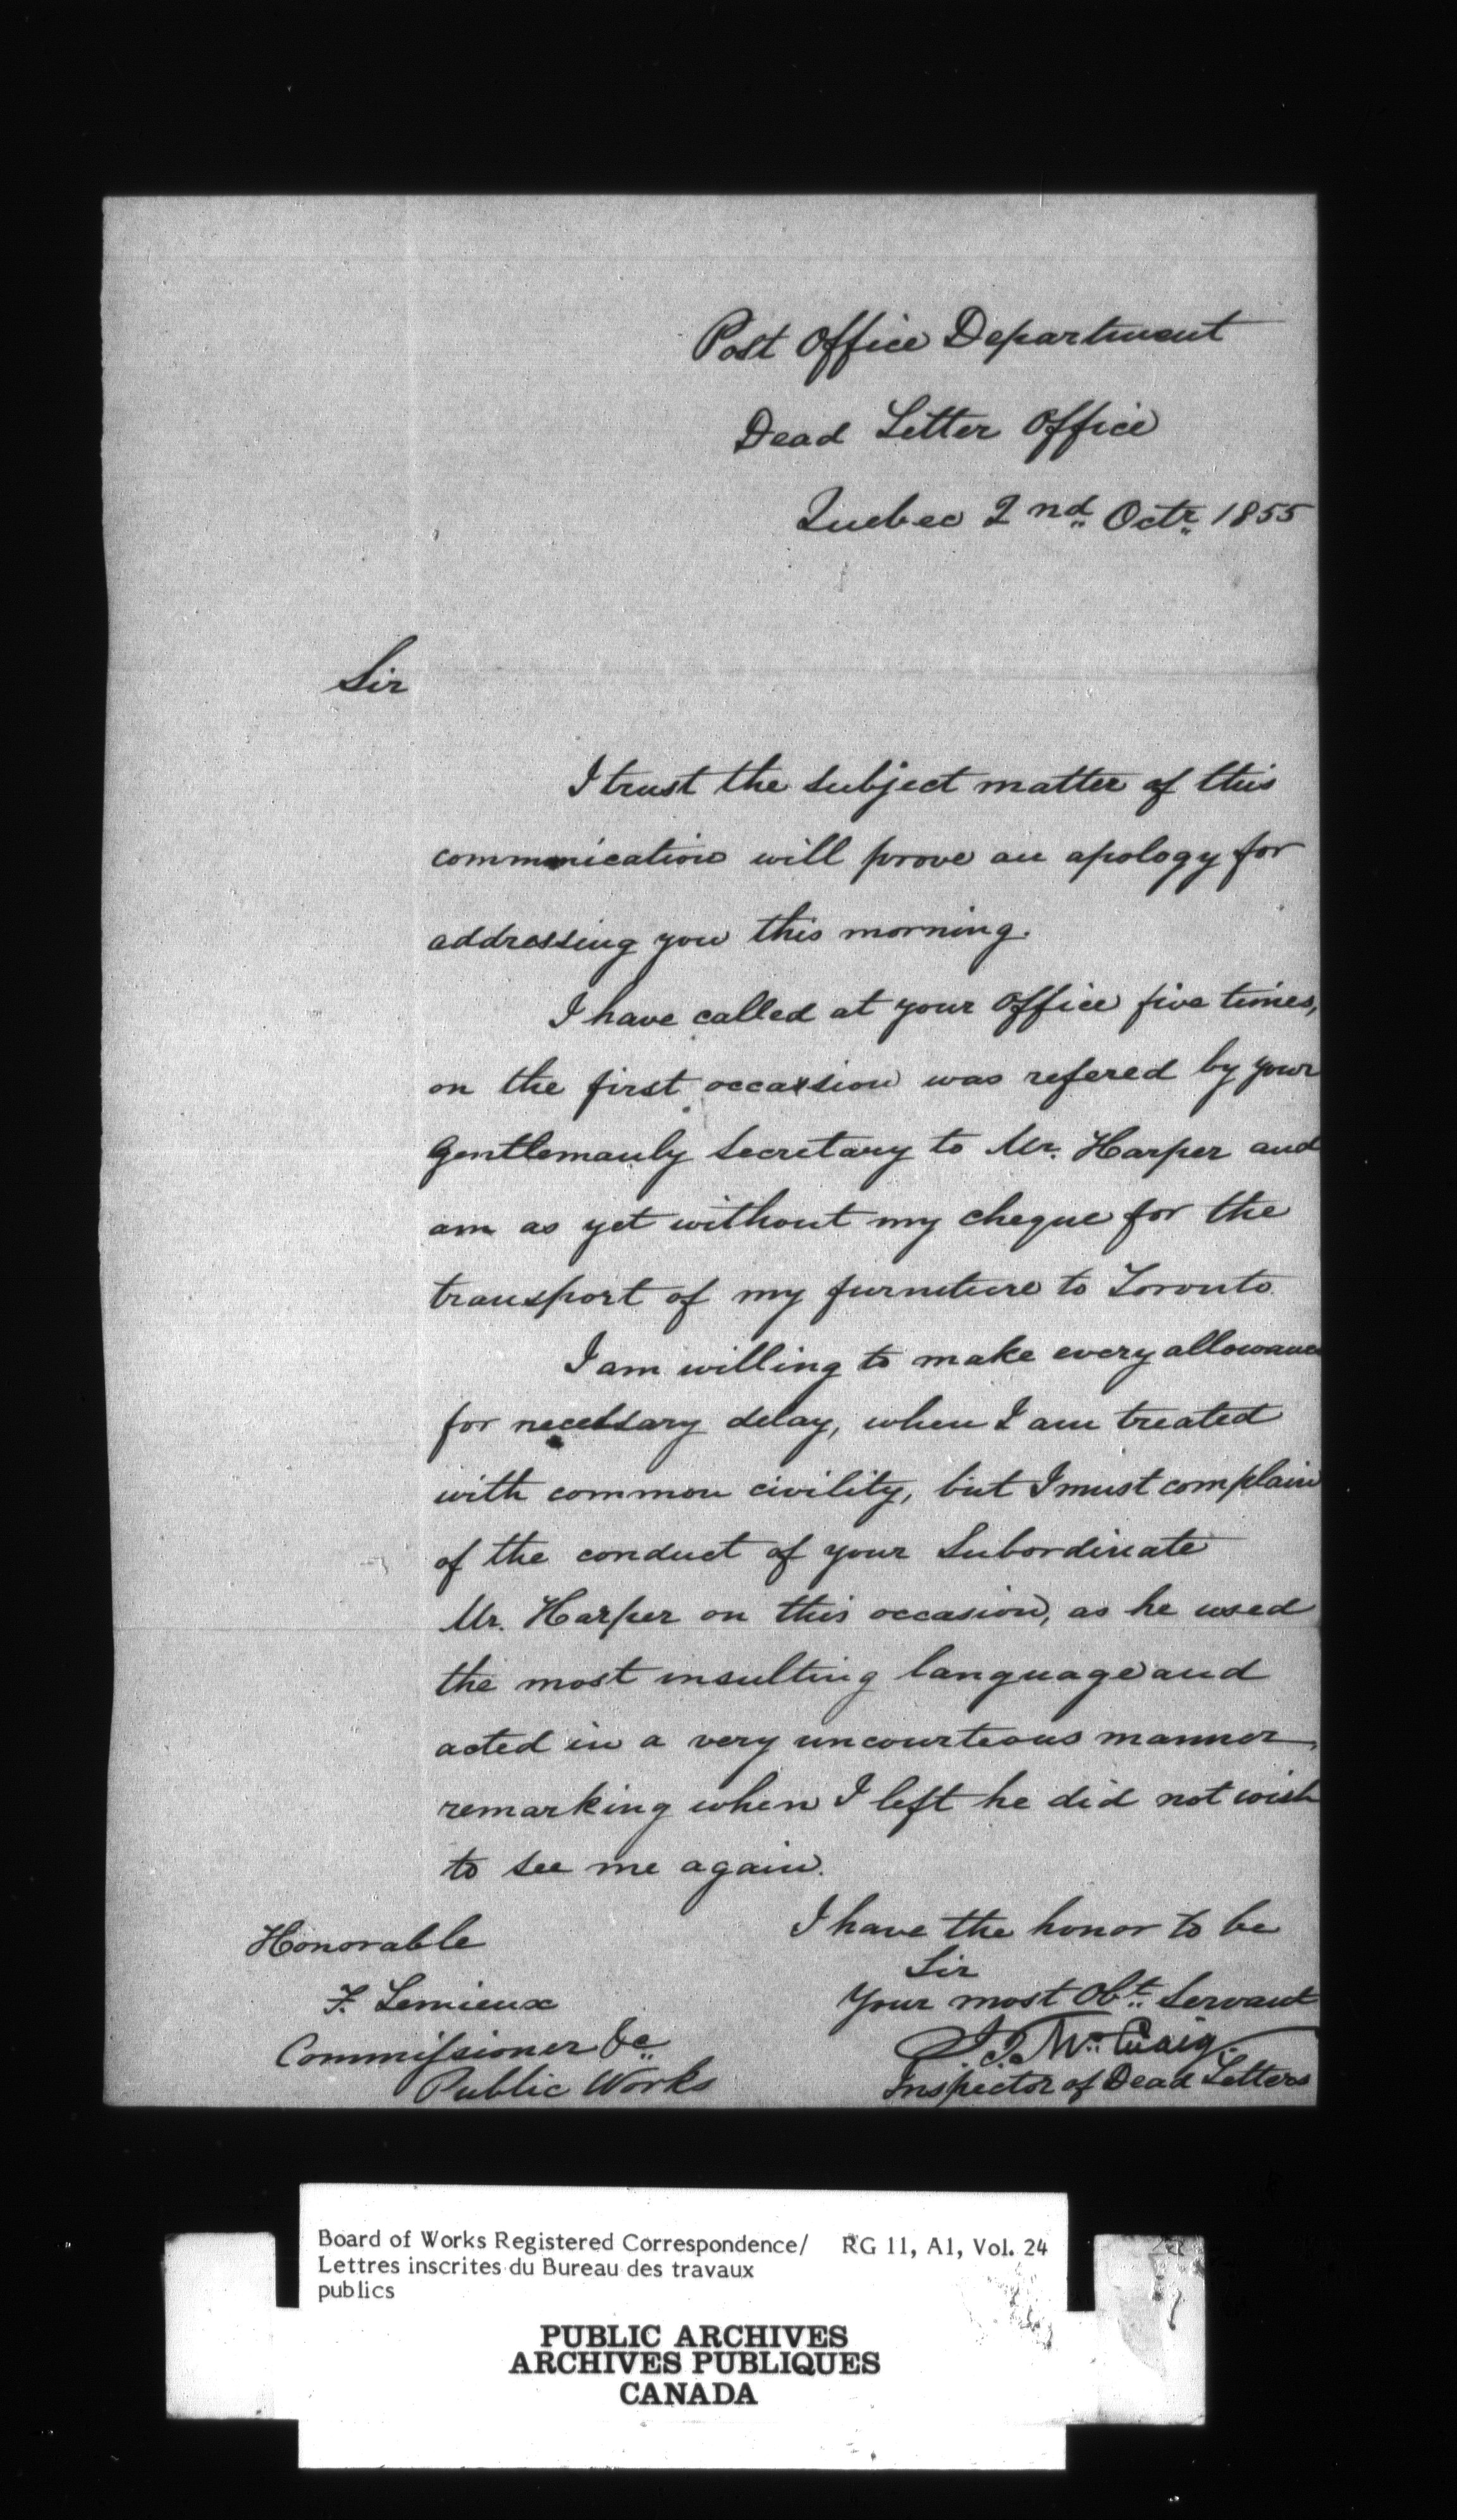 Post Office Department
Dead Letter Office
Quebec 2nd Octr 1855
Sir
I trust the subject matter of this
communication will prove an apology for
addressing you this morning.
I have called at your Office five times,
on the first occassion was refered by your
Gentlemanly Secretary to Mr. Harper and
am as yet without my cheque for the
transport of my furniture to Toronto
I am willing to make every allowance
for necessary delay, when I am treated
with common civility, but I must complain
of the conduct of your Subordinate
Mr. Harper on this occasion, as he used
the most insulting language and
acted in a very uncourteous manner,
remarking when I left he did not wish
to see me again.
I have the honor to be
Sir
Your most Obt. Servant
Mc.Cuaig.
Inspector of Dead Letters
Honorable
F. Lemieux
Commissioner &c
Public Works
Board of Works Registered Correspondence/ RG 11, A1, Vol. 24
Lettres inscrites du Bureau des travaux
publics
PUBLIC ARCHIVES
ARCHIVES PUBLIQUES
CANADA